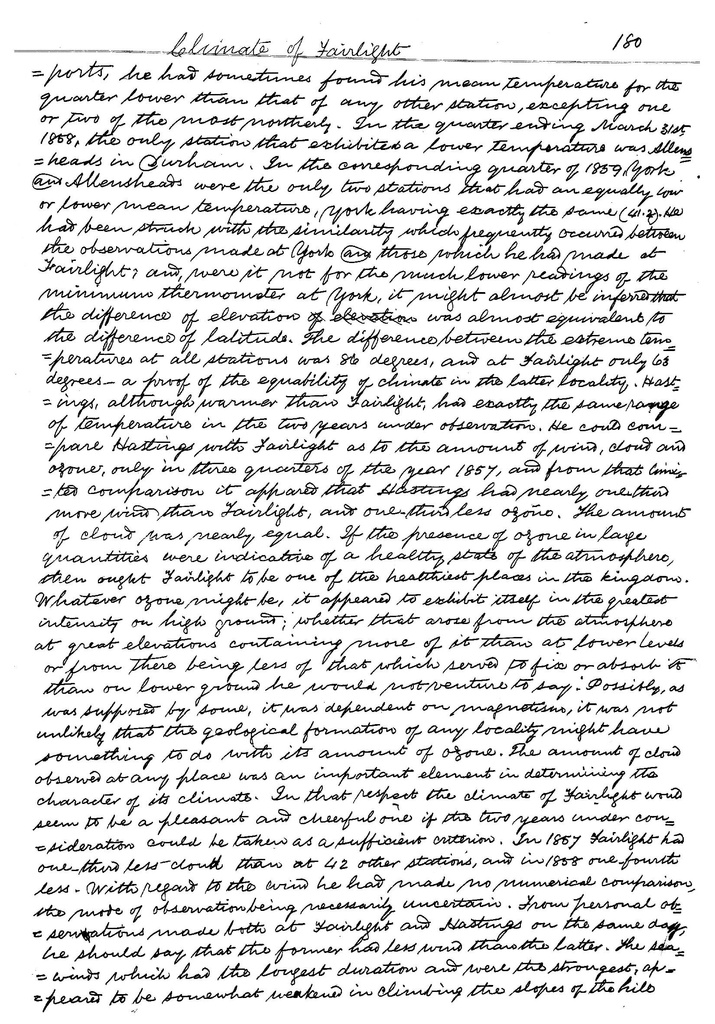 Climate of Fairlight 180
=ports, he had sometimes found his mean temperature for the
quarter lower than that of any other station, excepting one
or two of the most northerly. In the quarter ending March 31st
1858, the only station that exhibited a lower temperature was Allens
=heads in Durham. In the corresponding quarter of 1859, York
and Allensheads were the only two stations that had an equally low
or lower mean temperature, York having exactly the same (41.2). He
had been struck with the similarity which frequently occurred between
the observations made at York and those which he had made at
Fairlight; and, were it not for the much lower readings of the
minimum thermometer at York, it might almost be inferred that
the difference of elevation of elevation was almost equivalent to
the difference of latitude. The difference between the extreme tem=
=peratures at all stations was 86 degrees, and at Fairlight only 63
degrees – a proof of the equability of climate in the latter locality. Hast=
=ings, although warmer than Fairlight, had exactly the same range
of temperature in the two years under observation. He could com=
=pare Hastings with Fairlight as to the amount of wind, cloud and
ozone, only in three quarters of the year 1857, and from that limi=
=ted comparison it appeared that Hastings had nearly one-third
more wind than Fairlight, and one-third less ozone. The amount
of cloud was nearly equal. If the presence of ozone in large
quantities were indicative of a healthy state of the atmosphere,
then ought Fairlight to be one of the healthiest places in the kingdom.
Whatever ozone might be, it appeared to exhibit itself in the greatest
intensity on high ground; whether that arose from the atmosphere
at great elevations containing more of it than at lower levels
or from there being less of that which served to fix or absorb it
than on lower ground he would not venture to say. Possibly, as
was supposed by some, it was dependent on magnetism, it was not
unlikely that the geological formation of any locality might have
something to do with its amount of ozone. The amount of cloud
observed at any place was an important element in determining the
character of its climate. In that respect the climate of Fairlight would
seem to be a pleasant and cheerful one if the two years under con=
=sideration could be taken as a sufficient criterion. In 1857 Fairlight had
one-third less cloud than at 42 other stations, and in 1858 one-fourth
less. With regard to the wind he had made no numerical comparison,
the mode of observation being necessarily uncertain. From personal ob=
=servations made both at Fairlight and Hastings on the same day,
he should say that the former had less wind than the latter. The sea=
=winds which had the longest duration and were the strongest, ap=
=peared to be somewhat weakened in climbing the slopes of the hill